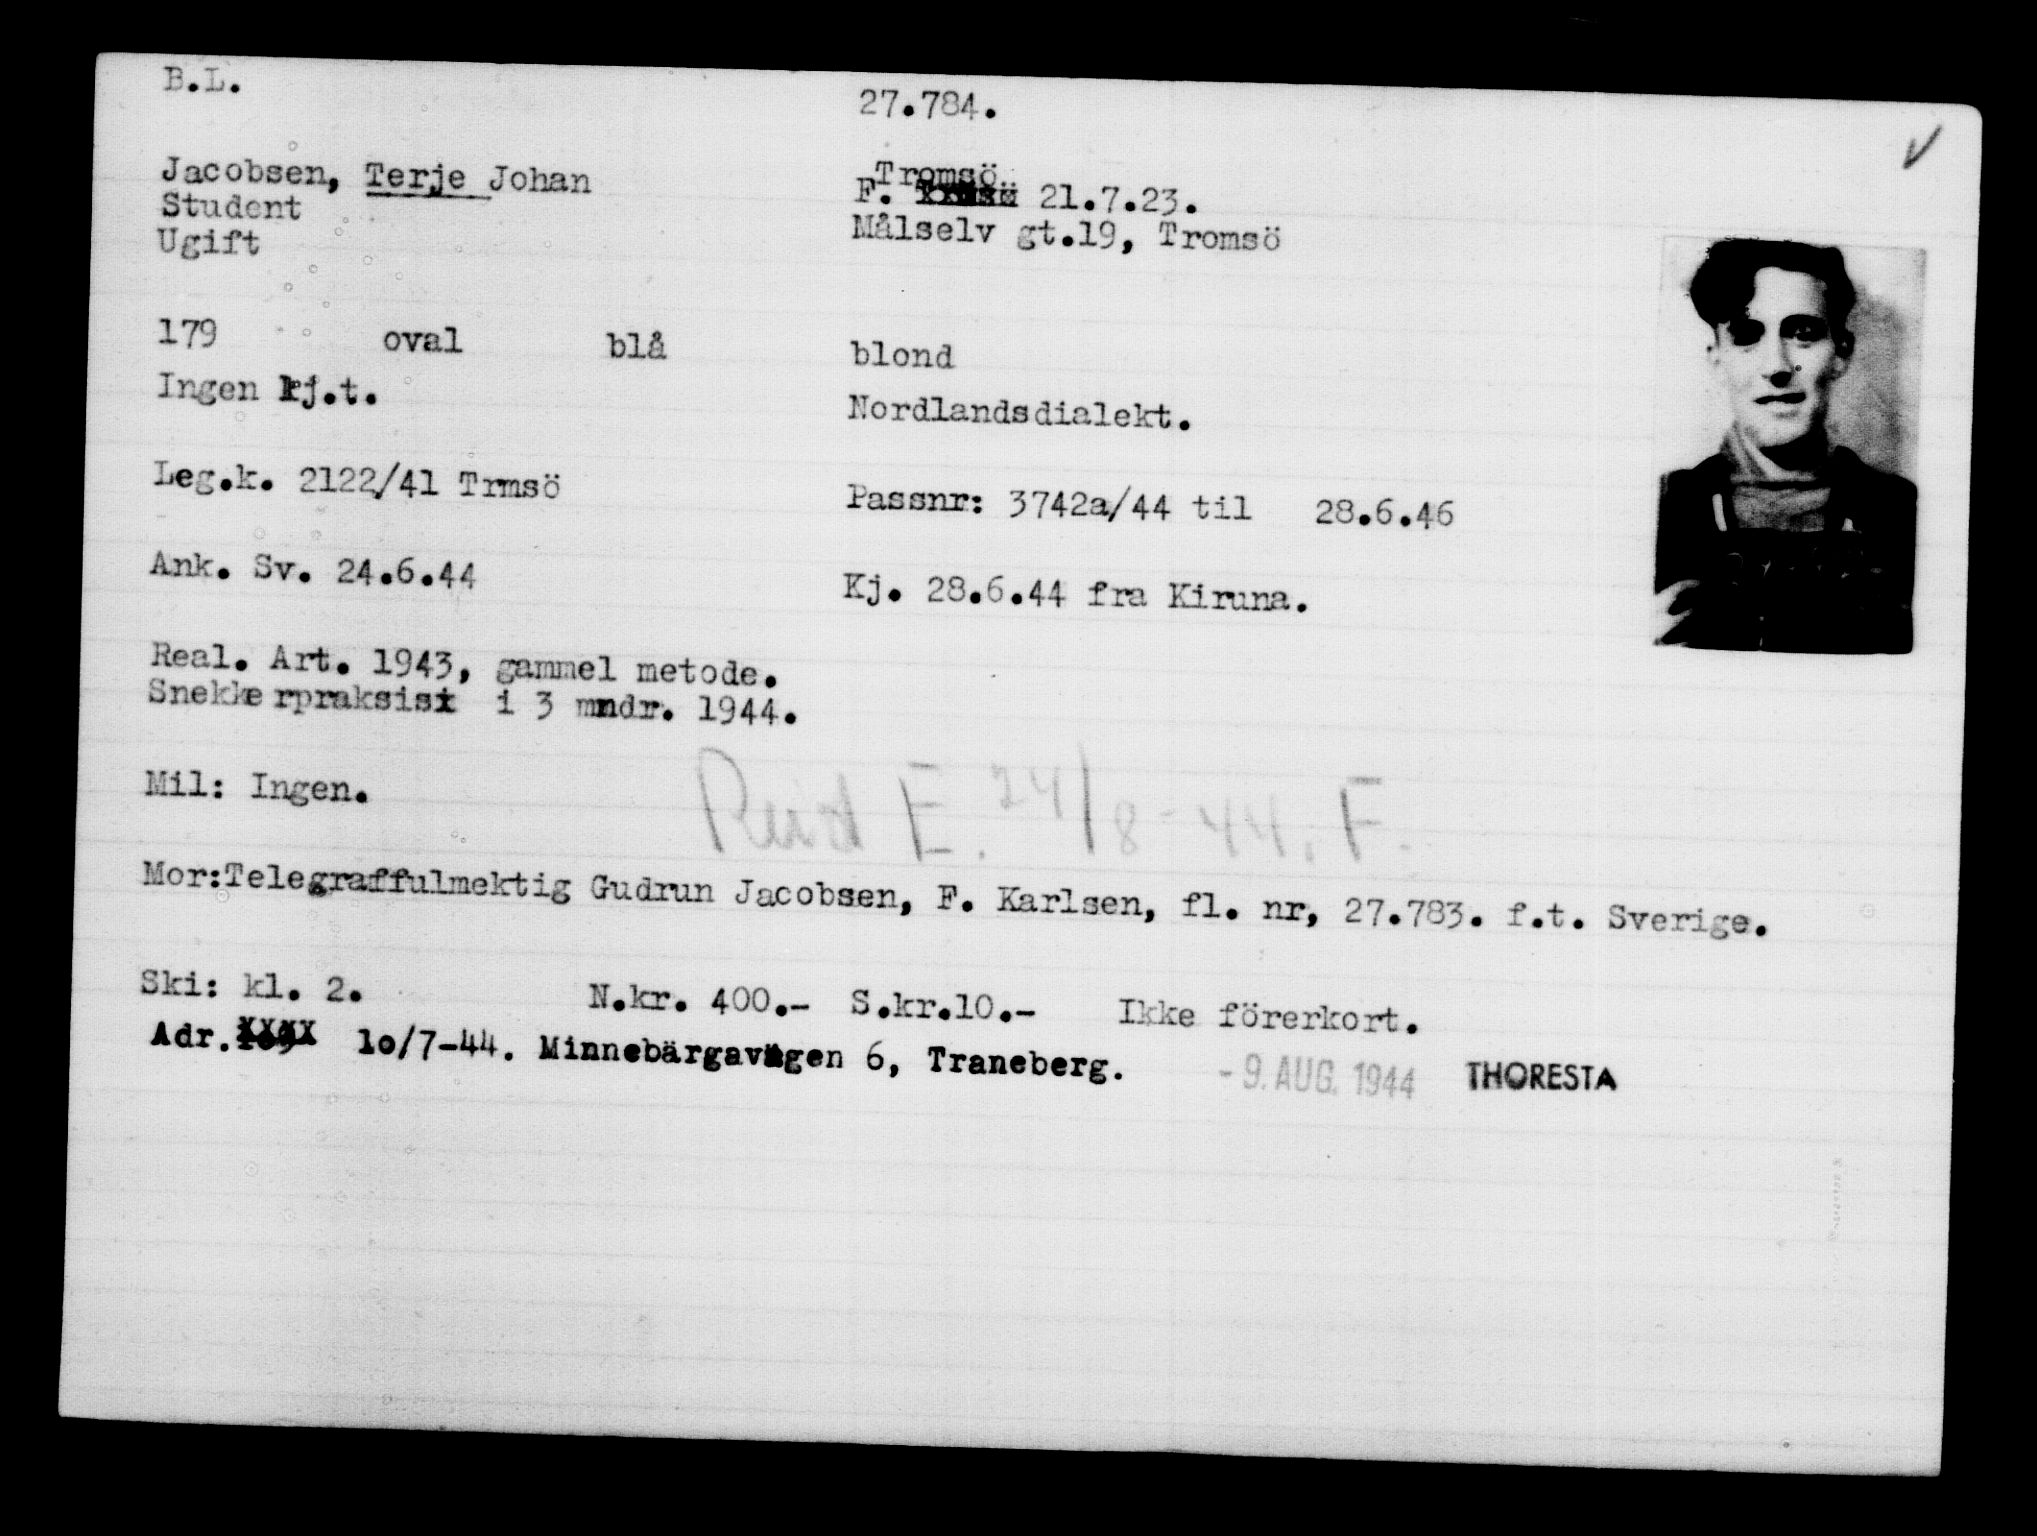 B.L.
27.784.
Jacobsen, Terje Johan
Tromsö
F. 21.7.23.
Student
Målselv gt.19, Tromsö
Ugift
179 oval blå blond
Ingen kj.t. Nordlandsdialekt.
Leg.k. 2122/41 Trmsö Passnr: 3742a/44 til 28.6.46
Ank. Sv. 24.6.44 Kj. 28.6.44 fra Kiruna.
Real. Art. 1943, gammel metode.
Snekkerpraksis i 3 mndr. 1944.
Mil: Ingen.
E. 24/8-44. F.
Mor:Telegraffulmektig Gudrun Jacobsen, F. Karlsen, fl. nr, 27.783. f.t. Sverige.
Ski: kl. 2. N.kr. 400.- S.kr.10.- Ikke förerkort.
Adr. 10/7-44. Minnebärgavägen 6, Traneberg.
- 9. AUG. 1944 THORESTA